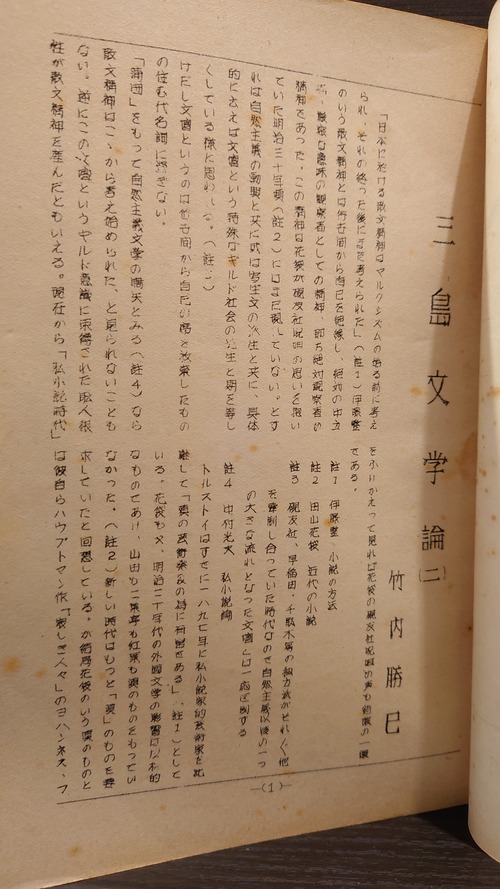 三島文学論(二)
竹内勝巳
「日本に於ける散文精神はマルクシズムの始る前に考え
られ、それの終った後にまた考えられた」(註1)伊藤整
のいう散文精神とは俗世間から自己を絶縁し、絶対の中立
者、厳格な意味の観察者としての精神、即ち絶対観察者の
精神であった。この精神は花袋が硯友社呪咀の思いを吸い
ていた明治三十年頃(註2)にはまだ現していない。とす
れば自然主義の勃興と共に或は写生文の派生と共に、具体
的に云えば文壇という特殊なギルド社会の発生と期を等し
くしている様に思われる。(註3)
けだし文壇というのは俗世間から自己の席を放棄したもの
の住む代名詞に過ぎない。
「蒲団」をもって自然主義文学の嚆矢とみる(註4)なら
散文精神はこゝから考え始められた、と見られないことも
ない。逆にこの文壇というギルド意識に束縛された職人根
性が散文精神を産んだともいえる。現在から「私小説時代」
をふりかえって見れば花袋の硯友社呪咀の声も
である。
註1 伊藤整 小説の方法
註2 田山花袋 近代の小説
註3 硯友社、早稲田、千駄木等の
を牽制し合っていた時代なので自然主義以後の一つ
の大きな流れとなった文壇とは一応区別する
註4 中村光夫 私小説論
トルストイはすでに一八九七年に私小説家的芸術家を批
難して「真の芸術家
いる。花袋も又、明治二十年代の外国文学の影響は
なものであり、山田も二葉亭も紅葉も真のものをもってい
なかった。(註2)新しい時代はもっと「真」のものを要
求していたと回想している。が結局花袋のいう真のものと
は彼自らハウプトマン作「寂しき人々」のヨハンネス、フ
—(1)—